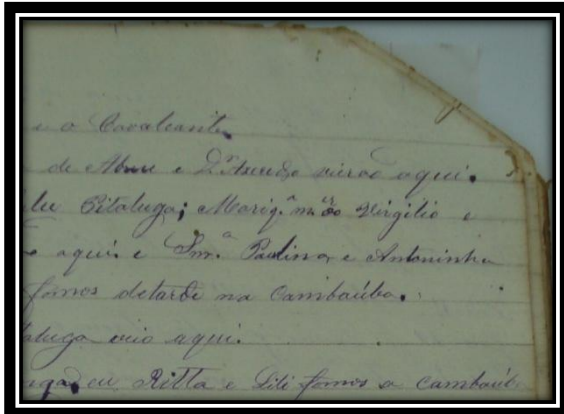 e o Cavalcante
de Abreu e Dr Azevedo vierão aqui.
Pitaluga; Mariq.ª m.er do Virgilio e
aqui e Snr.ª Paulina e Antoninha
fomos detarde na Cambaúba.
aluga veio aqui.
eu Ritta e Lili fomos a Cambaúb